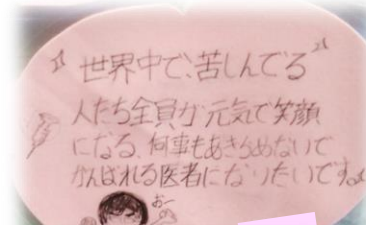 世界中で、苦しんでる
人たち全員が元気で笑顔
になる、何事もあきらめないで
がんばれる医者になりたいです。
おー